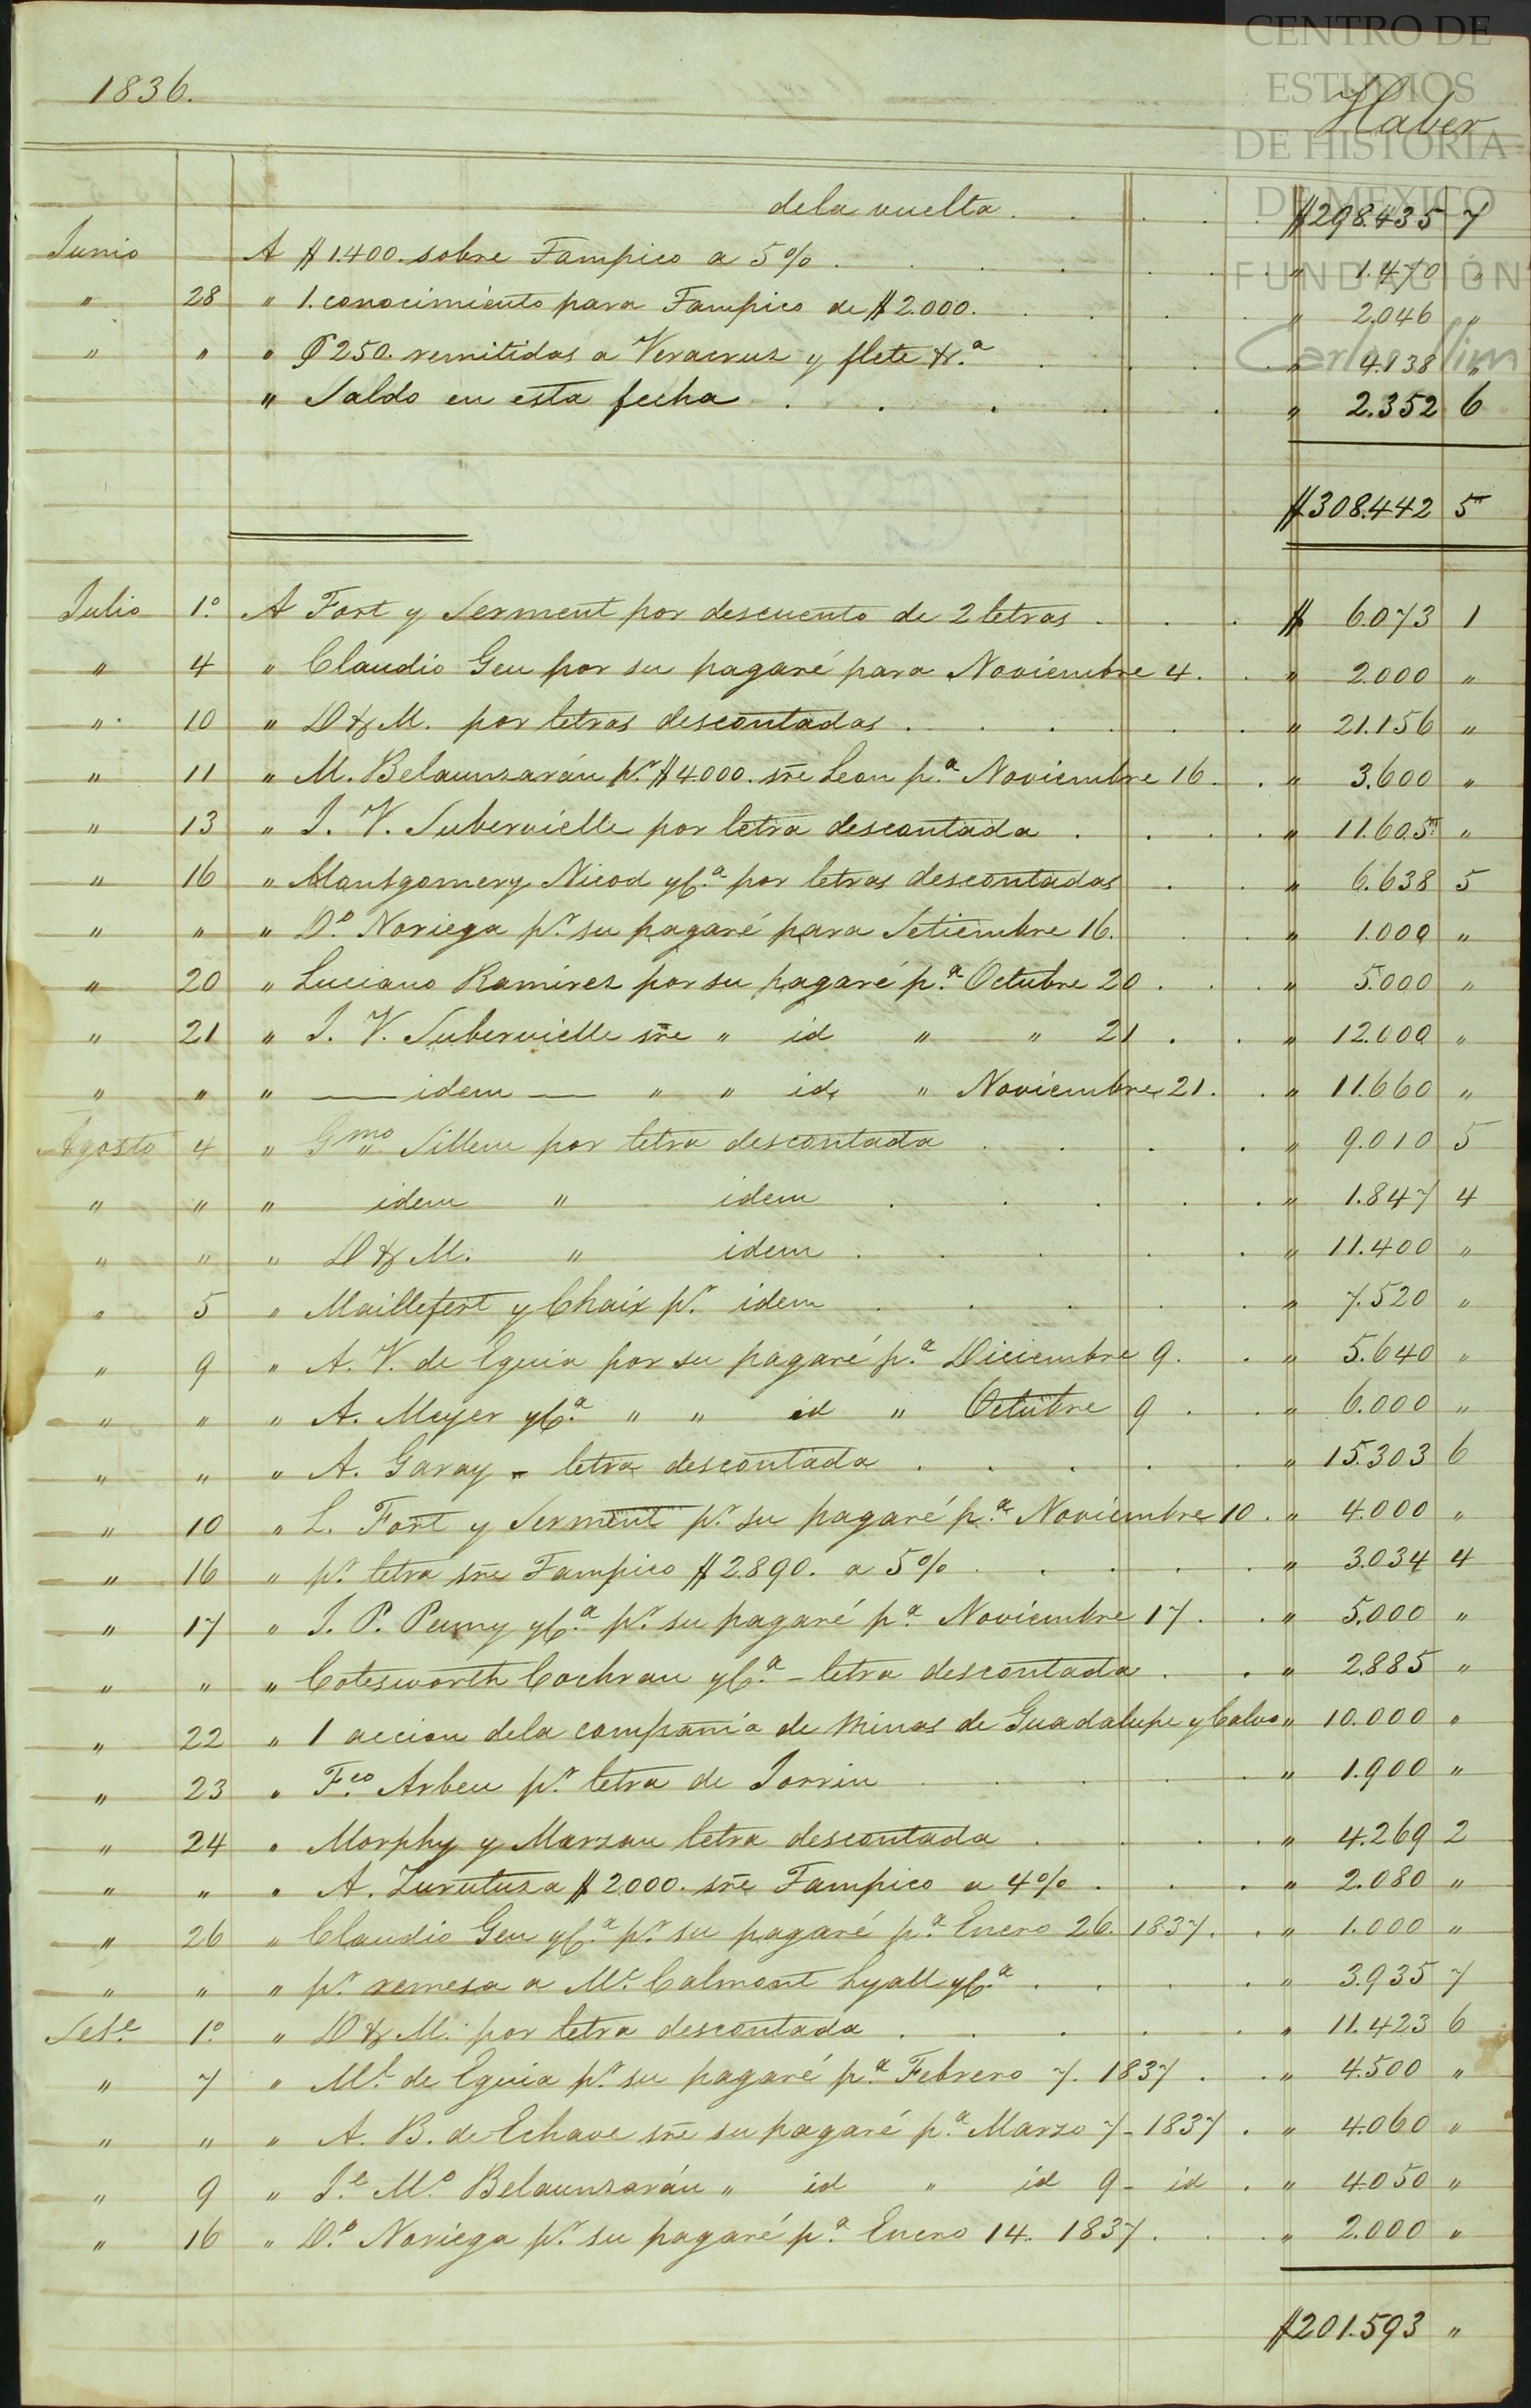 CENTRO DE
ESTUDIOS
DE HISTORIA
DE MEXICO
FUNDACIÓN
Carlos Slim
1836.
Haber
dela vuelta . . . . $298.435 7
Junio A $1.400. sobre Tampico a 5% . . . . " 1.470 "
" 28 " 1. conocimiento para Tampico de $2.000. . . . " 2.046 "
" " " 250. remitidas a Veracruz y flete &.a . . . " 4.138 "
" Saldo en esta fecha . . . . . " 2.352 6
$308.442 5
Julio 1.o A Fort y Serment por descuento de 2 letras . . . $ 6.073 1
" 4 " Claudio Gen por su pagaré para Noviembre 4. . " 2.000 "
" 10 " D & M. por letras descontadas . . . . " 21.156 "
" 11 " M. Belaunzarán p.r $4.000. sre Leon p.a Noviembre 16. . " 3.600 "
" 13 " J. V. Subervielle por letra descontada . . . " 11.605 "
" 16 " Montgomery Nicod yC.a por letras descontadas . . " 6.638 5
" " " D.o Noriega p.r su pagaré para Setiembre 16. . . " 1.000 "
" 20 " Luciano Ramirez por su pagaré p.a Octubre 20 . . . " 5.000 "
" 21 " J. V. Subervielle sre " id " " 21 . . " 12.000 "
" " " — idem — " " id " Noviembre 21. . " 11.660 "
Agosto 4 " Gmo Sillem por letra descontada . . . . " 9.010 5
" " " idem " idem . . . . . " 1.847 4
" " " D & M. " idem . . . . " 11.400 "
" 5 " Maillefert y Chaix p.r idem . . . . " 7.520 "
" 9 " A. V. de Eguia por su pagaré p.a Diciembre 9. . " 5.640 "
" " " A. Meyer yC.a " " id " Octubre 9 . . " 6.000 "
" " " A. Garay - letra descontada . . . . . " 15.303 6
" 10 " L. Fort y Serment p.r su pagaré p.a Noviembre 10 . " 4.000 "
" 16 " p.r letra sre Tampico $2.890. a 5% . . . . " 3.034 4
" 17 " J. P. Penny yC.a p.r su pagaré p.a Noviembre 17. . " 5.000 "
" " " Cotesworth Cochran yC.a - letra descontada . . " 2.885 "
" 22 " 1 accion dela compañia de Minas de Guadalupe y Calvo " 10.000 "
" 23 " F.co Arbeu p.r letra de Jorrin . . . . " 1.900 "
" 24 " Morphy y Marzan letra descontada . . . " 4.269 2
" " " A. Zurutuza $2000. sre Tampico a 4% . . . " 2.080 "
" 26 " Claudio Gen yC.a p.r su pagaré p.a Enero 26. 1837. . " 1.000 "
" " " p.r remesa a Mc. Calmont Lyall yC.a . . . " 3.935 7
Set.e 1.o " D & M. por letra descontada . . . . " 11.423 6
" 7 " M.l de Eguia p.r su pagaré p.a Febrero 7. 1837 . . " 4.500 "
" " " A. B. de Echave sre su pagaré p.a Marzo 7 - 1837 . " 4.060 "
" 9 " J.e M.a Belaunzarán " id " id 9 - id . " 4.050 "
" 16 " D.o Noriega p.r su pagaré p.a Enero 14. 1837. . . " 2.000 "
$201.593 "